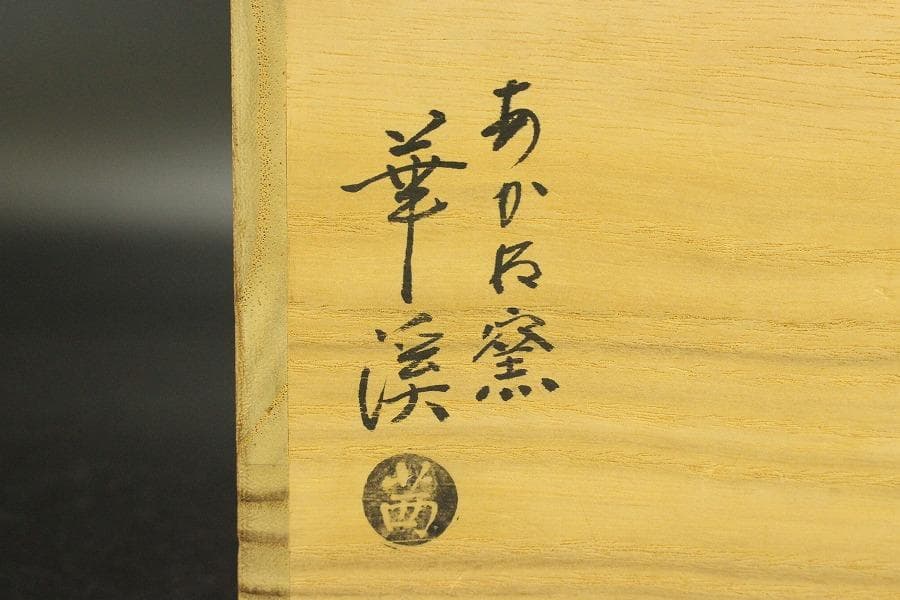 あかね窯
華溪
茜